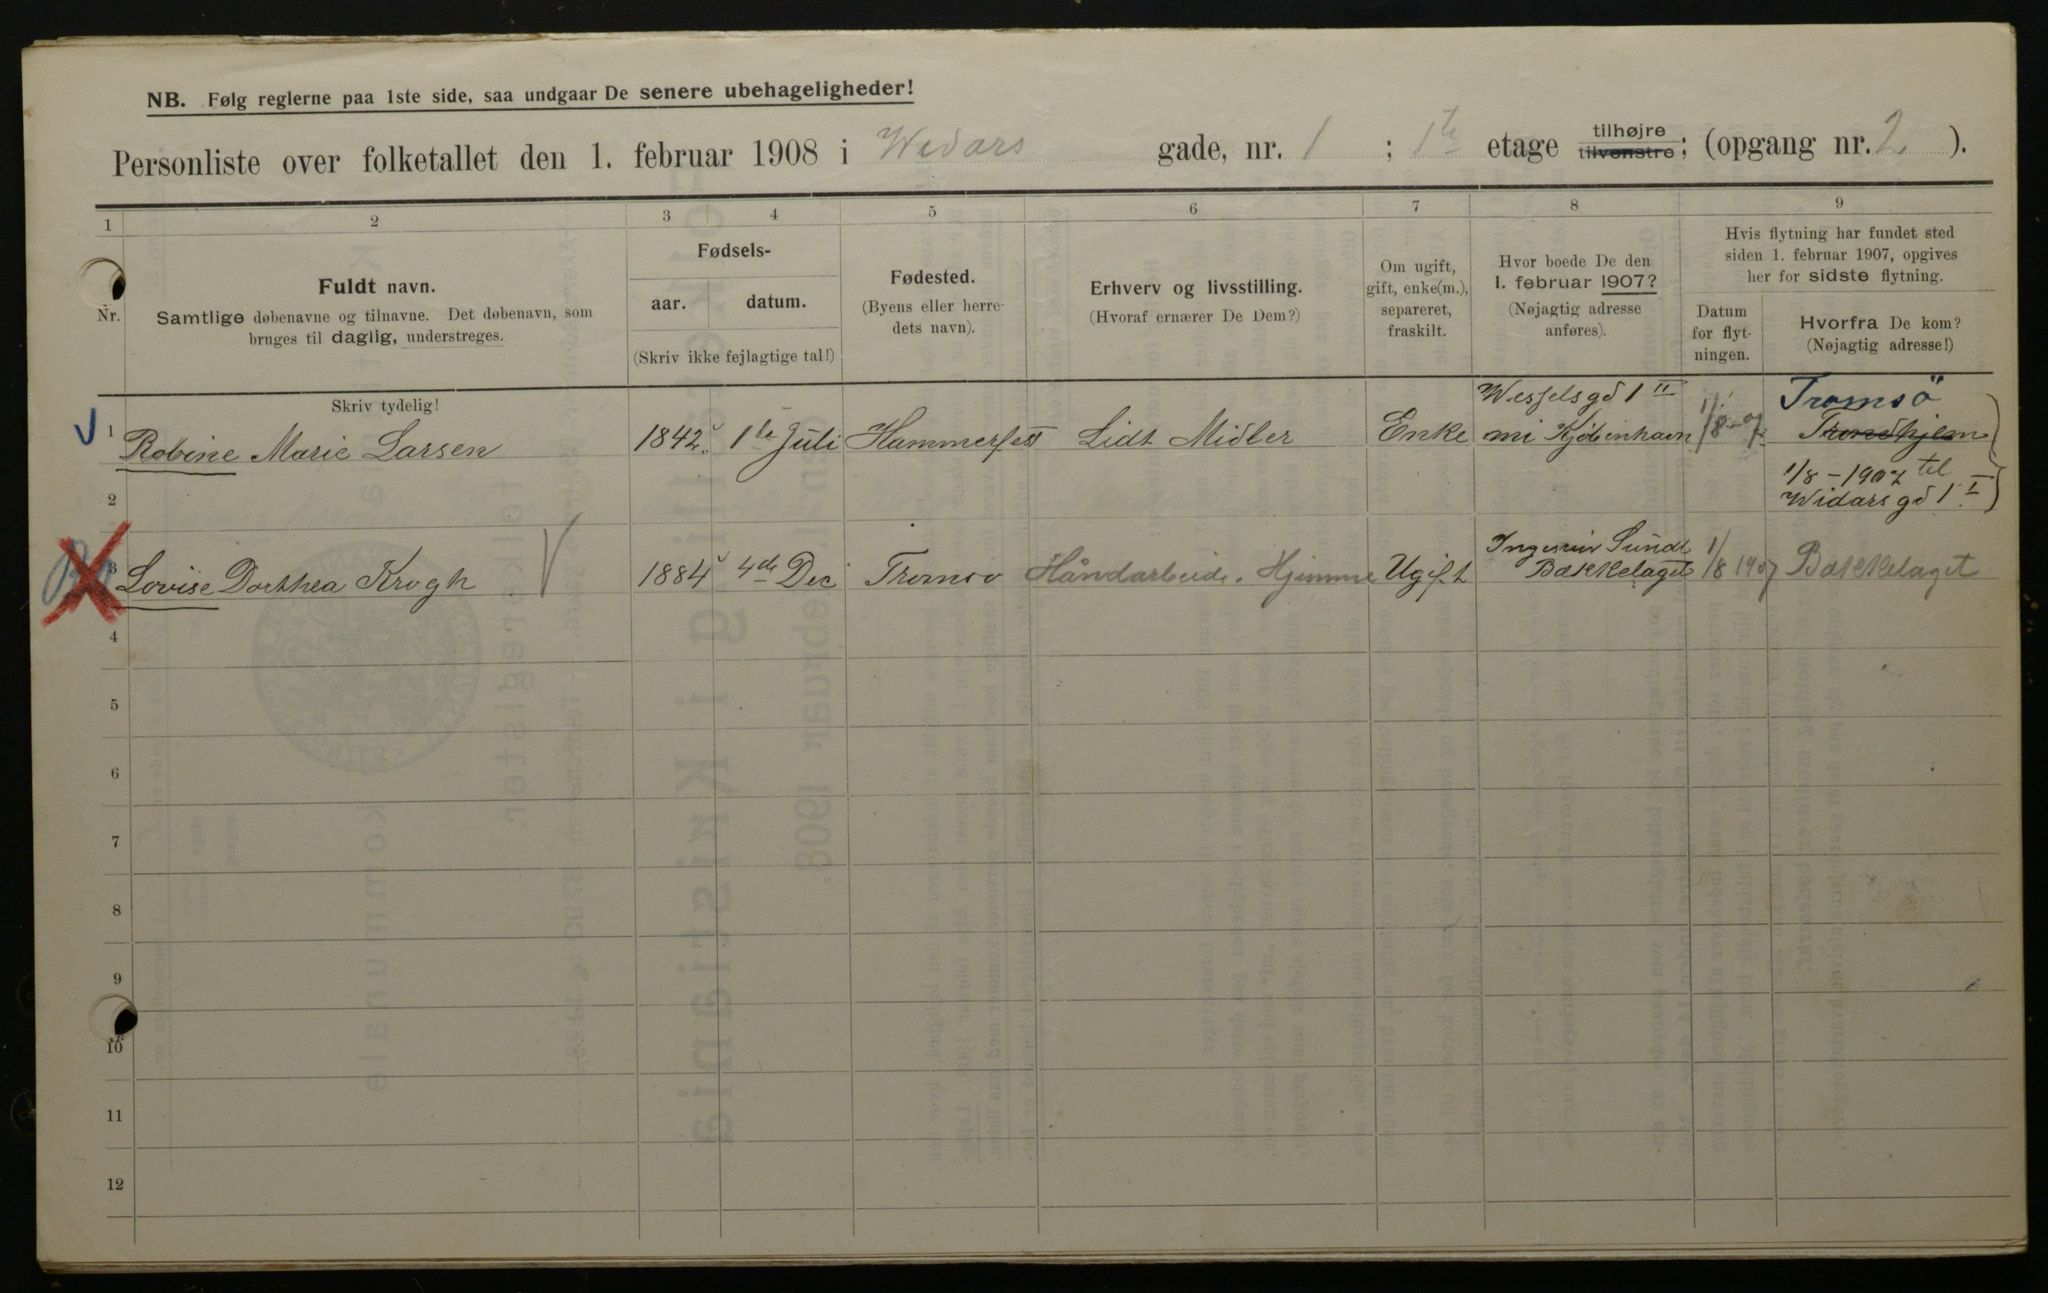 NB. Følg reglerne paa 1ste side, saa undgaar De senere ubehageligheder!
Personliste over folketallet den 1. februar 1908 i Widars gade, nr. 1 ; 1te etage tilhøjre tilvenstre; (opgang nr. 2 ).
1 2 3 4 5 6 7 8 9
Nr.
Fuldt navn.
Samtlige døbenavne og tilnavne. Det døbenavn, som
bruges til daglig, understreges.
Skriv tydelig!
Fødsels-
aar. datum.
(Skriv ikke fejlagtige tal!)
Fødested.
(Byens eller herre-
dets navn).
Erhverv og livsstilling.
(Hvoraf ernærer De Dem?)
Om ugift,
gift, enke(m.),
separeret,
fraskilt.
Hvor boede De den
1. februar 1907?
(Nøjagtig adresse
anføres).
Hvis flytning har fundet sted
siden 1. februar 1907, opgives
her for sidste flytning.
Datum
for flyt-
ningen.
Hvorfra De kom?
(Nøjagtig adresse!)
1 Robine Marie Larsen 1842 1te Juli Hammerfest Lidt Midler Enke Wesselsgd 1 II
mi Kjøbenhavn 1/8-07 Tromsö
Trondhjem
2 1/8-1907 til
Widarsgd 1 I
3 Lovise Dorthea Krogh 1884 4de Dec Tromsø Håndarbeide. Hjemme Ugift Ingeniør Sundt
Bækkelaget 1/8 1907 Bækkelaget
4
5
6
7
8
9
10
11
12